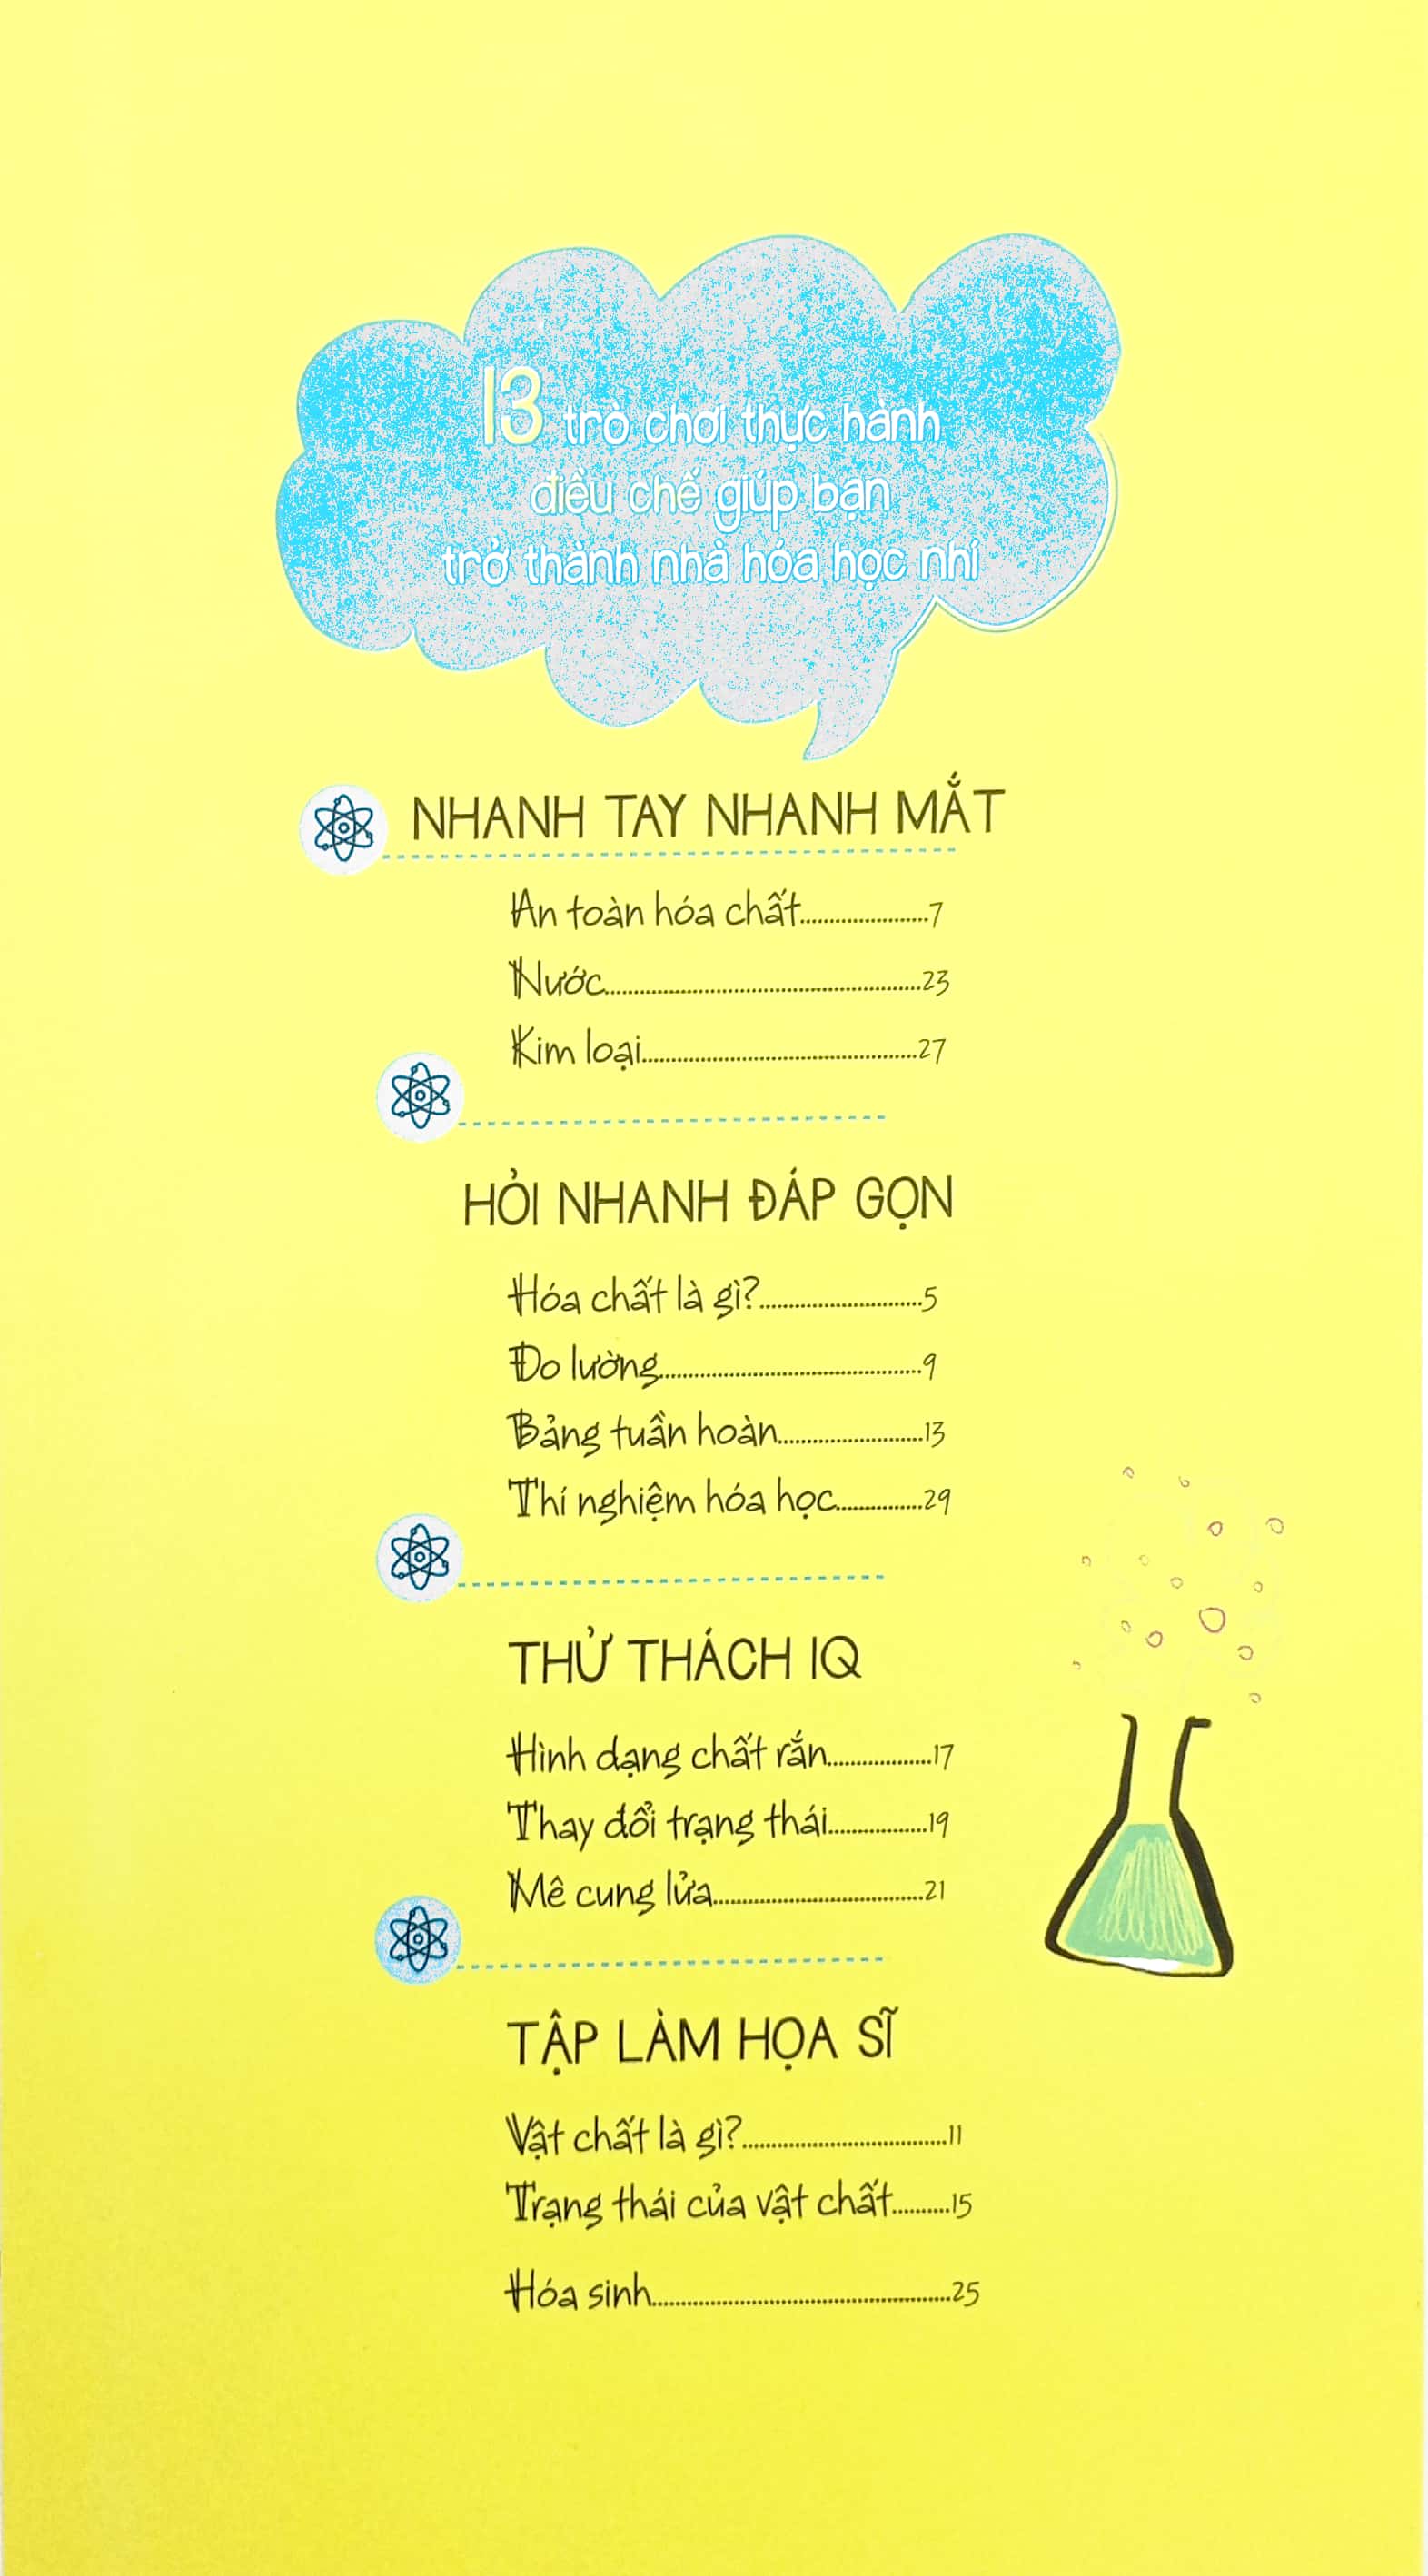 13 trò chơi thực hành
điều chế giúp bạn
trở thành nhà hóa học nhí
NHANH TAY NHANH MẮT
An toàn hóa chất......................7
Nước......................................................23
Kim loại...............................................27
HỎI NHANH ĐÁP GỌN
Hóa chất là gì?............................5
Đo lường.............................................9
Bảng tuần hoàn.........................13
Thí nghiệm hóa học...............29
THỬ THÁCH IQ
Hình dạng chất rắn..................17
Thay đổi trạng thái.................19
Mê cung lửa....................................21
TẬP LÀM HỌA SĨ
Vật chất là gì?...................................11
Trạng thái của vật chất..........15
Hóa sinh...................................................25